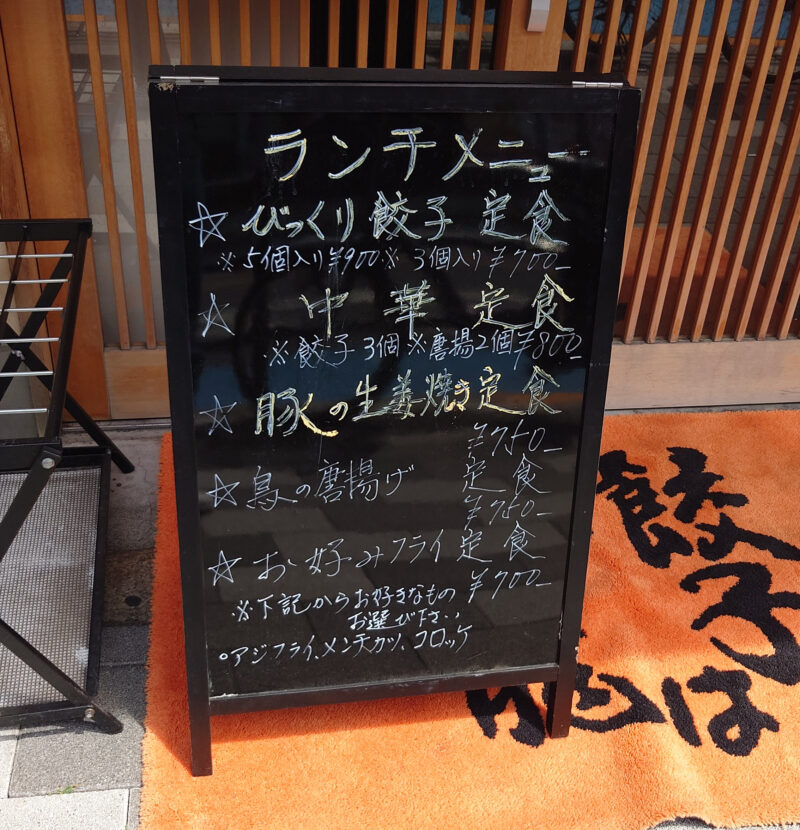 ランチメニュー
☆びっくり餃子定食
※5個入り¥900※3個入り¥700-
☆中華定食
※餃子3個※唐揚2個¥800-
☆豚の生姜焼き定食
¥750-
☆鳥の唐揚げ定食
¥750-
☆お好みフライ定食
¥700-
※下記からお好きなもの
お選び下さい
○アジフライ、メンチカツ、コロッケ
餃子は